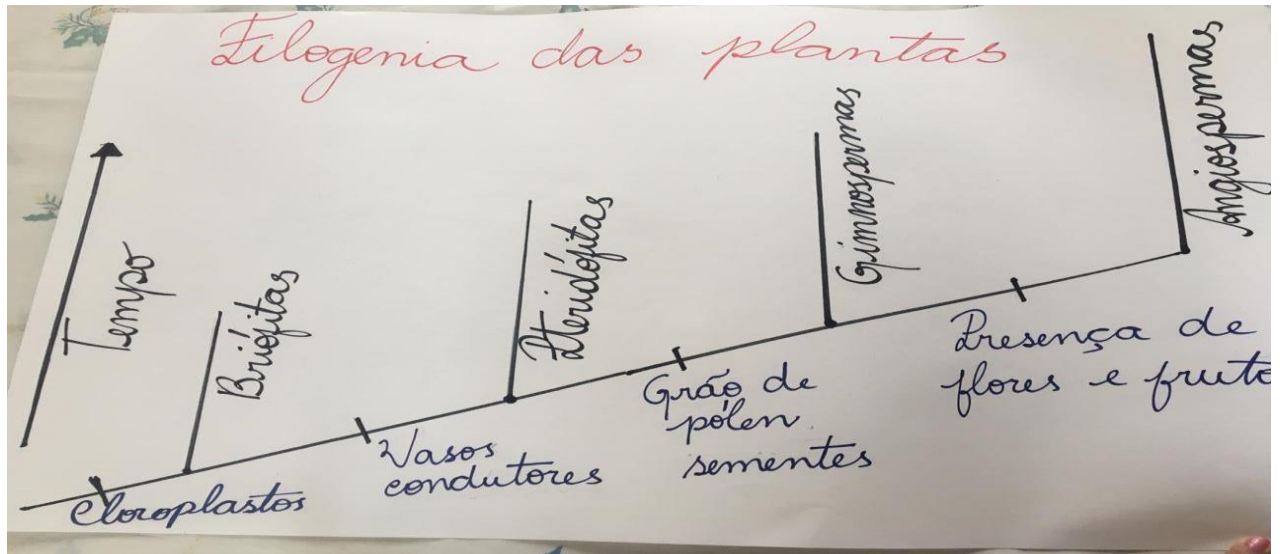 Filogenia das plantas
Tempo
Briófitas
Pteridófitas
Gimnospermas
Angiospermas
Cloroplastos
Vasos
condutores
Grão de
pólen
sementes
Presença de
flores e fruto